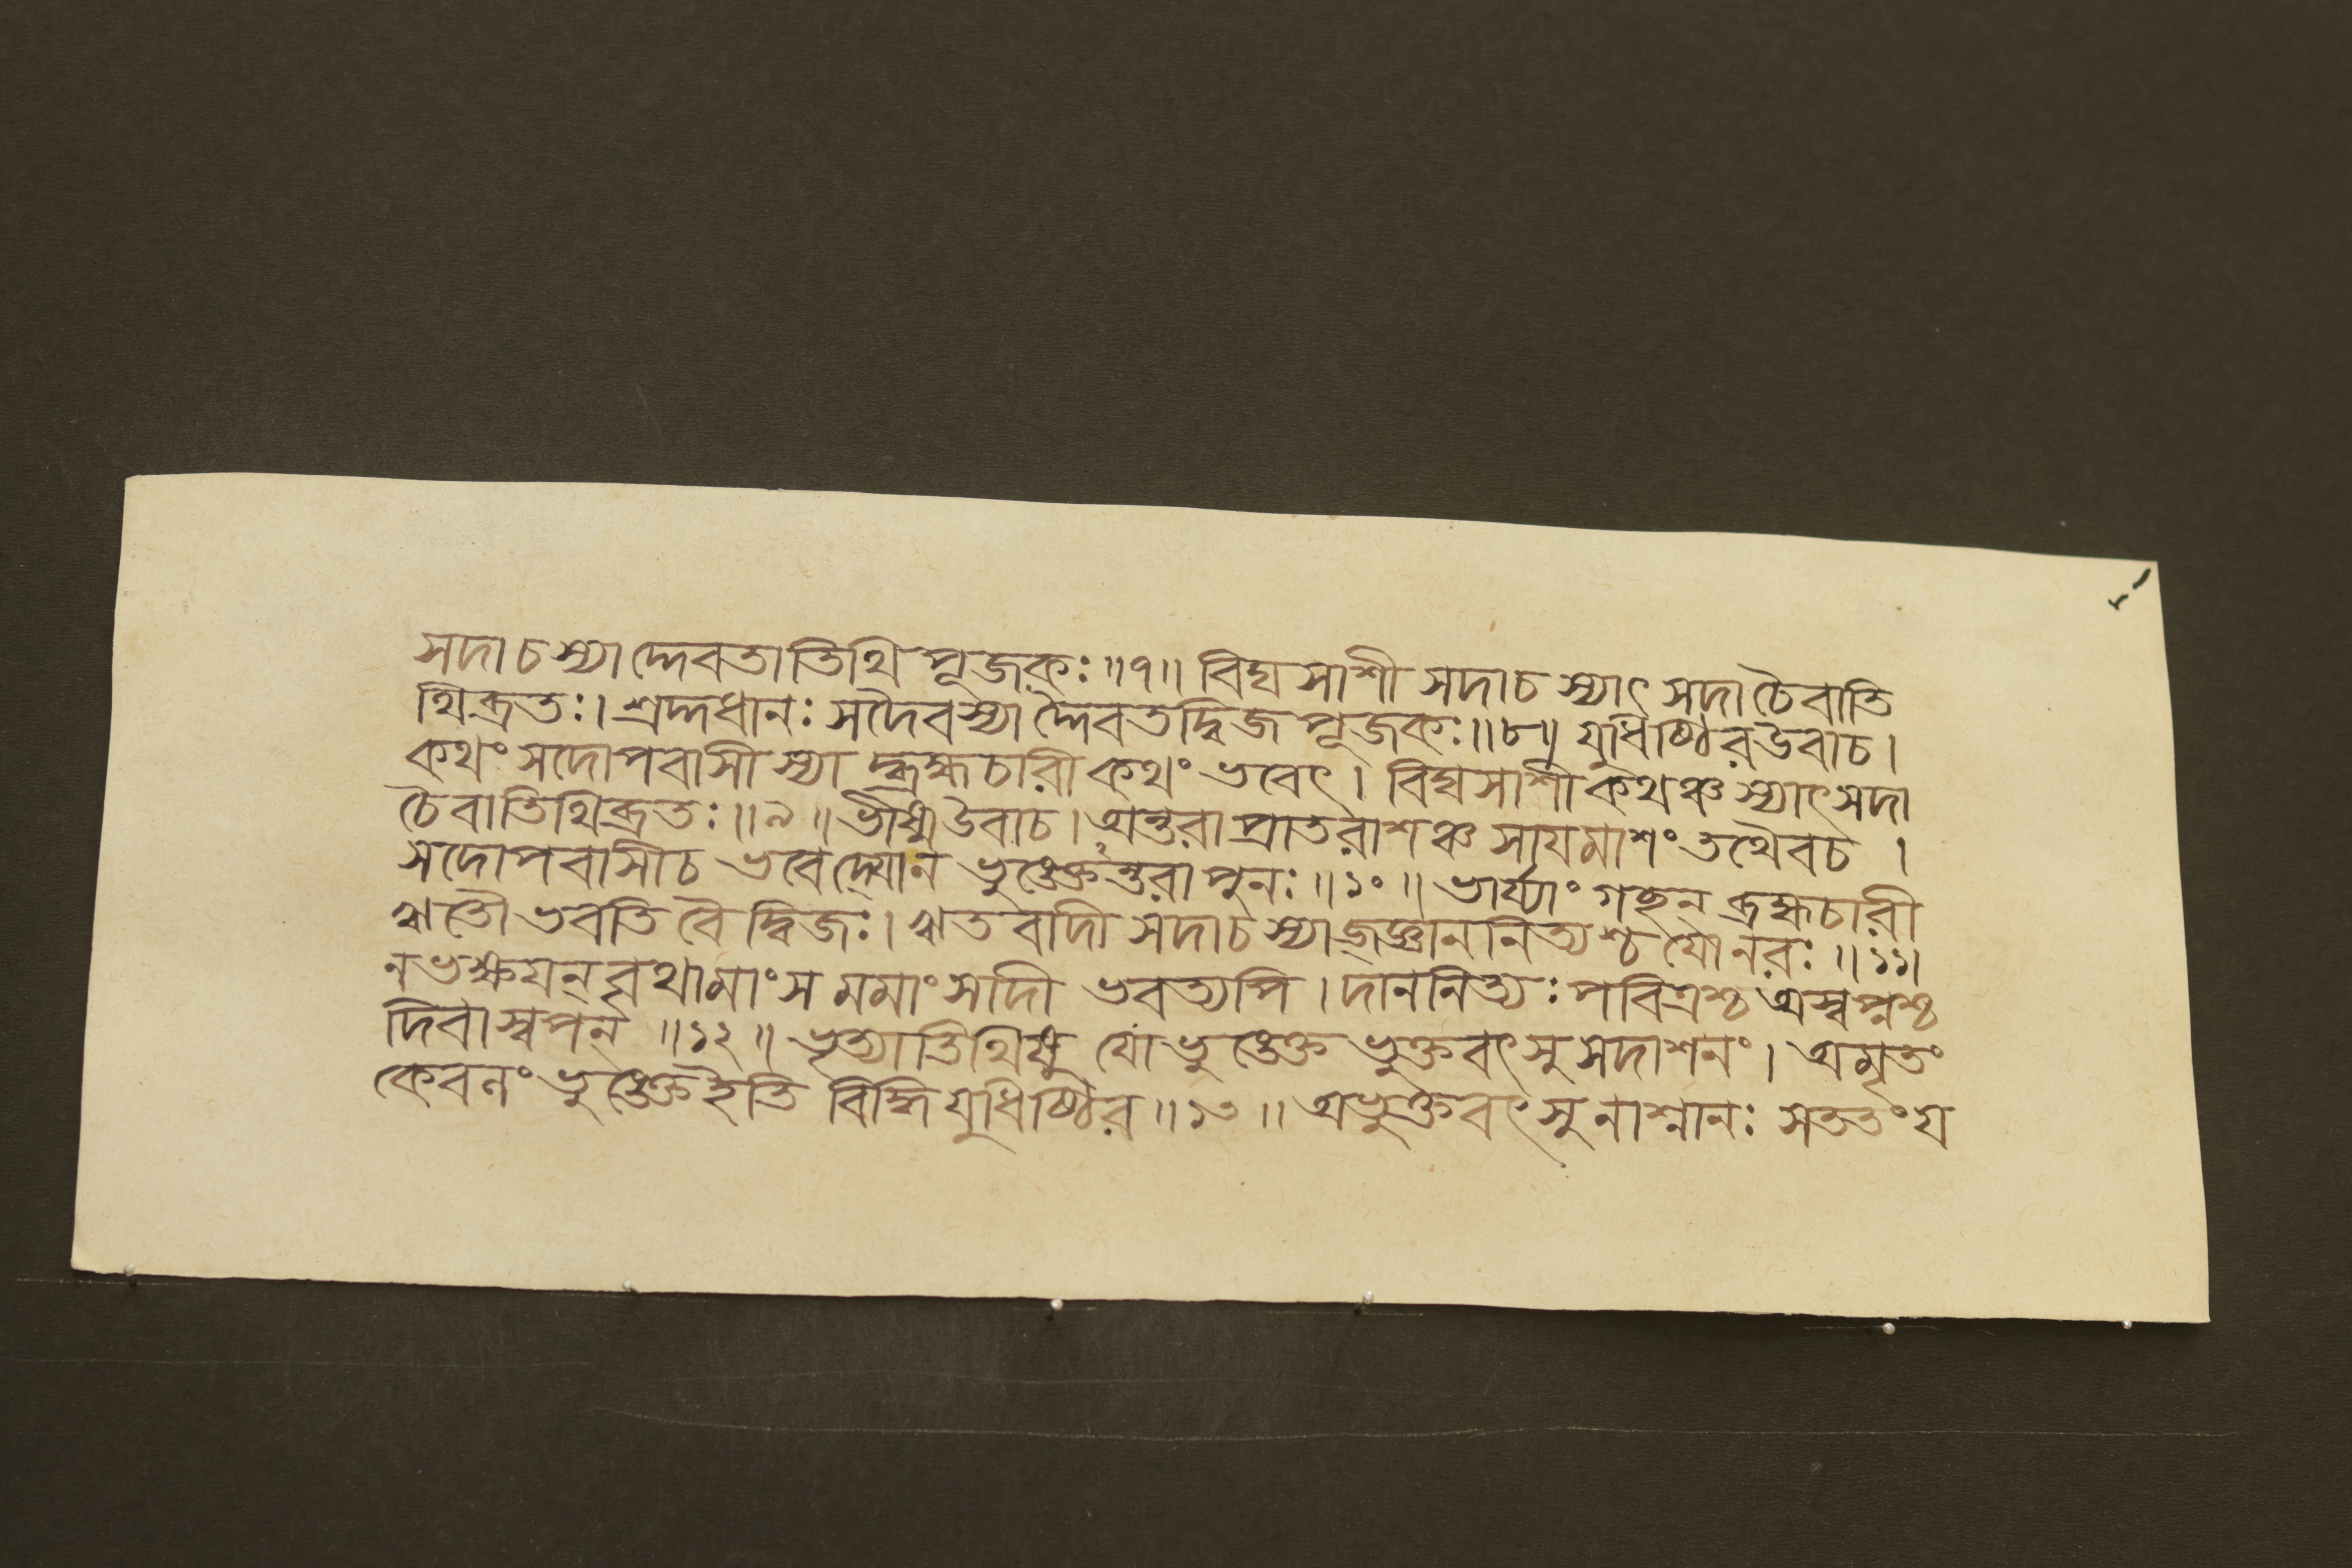 সদাচস্যাদ্দেবতাতিথিপূজকঃ ॥৭॥ বিঘসাশী সদাচ স্যাৎ সদাচৈবাতি
থিব্রতঃ। শ্রদ্দধানঃ সদৈবস্যাদ্দৈবতদ্বিজপূজকঃ ॥৮॥ যুধিষ্ঠিরউবাচ।
কথং সদোপবাসী স্যাদ্ব্রহ্মচারী কথং ভবেৎ। বিঘসাশী কথঞ্চ স্যাৎসদা
চৈবাতিথিব্রতঃ ॥৯॥ ভীষ্মউবাচ। অন্তরা প্রাতরাশঞ্চ সায়মাশং তথৈবচ ।
সদোপবাসীচ ভবেদ্যোন ভুঙেক্তঽন্তরা পুনঃ ॥১০॥ ভার্য্যাং গচ্ছন্ ব্রহ্মচারী
ঋতৌ ভবতি বৈ দ্বিজঃ। ঋতবাদী সদাচ স্যাজ্জ্ঞাননিত্যশ্চ যোনরঃ ॥১১॥
নভক্ষয়ন্ বৃথামাংসমমাংসাদী ভবত্যপি। দাননিত্যঃ পবিত্রশ্চ অস্বপ্নশ্চ
দিবাস্বপন্ ॥১২॥ ভৃত্যাতিথিষু যো ভুঙেক্ত ভুক্তবৎসু সদাশনং। অমৃতং
কেবলং ভুঙেক্ত ইতি বিদ্ধি যুধিষ্ঠির ॥১৩॥ অভুক্তবৎসু নাশ্নানঃ সততং য